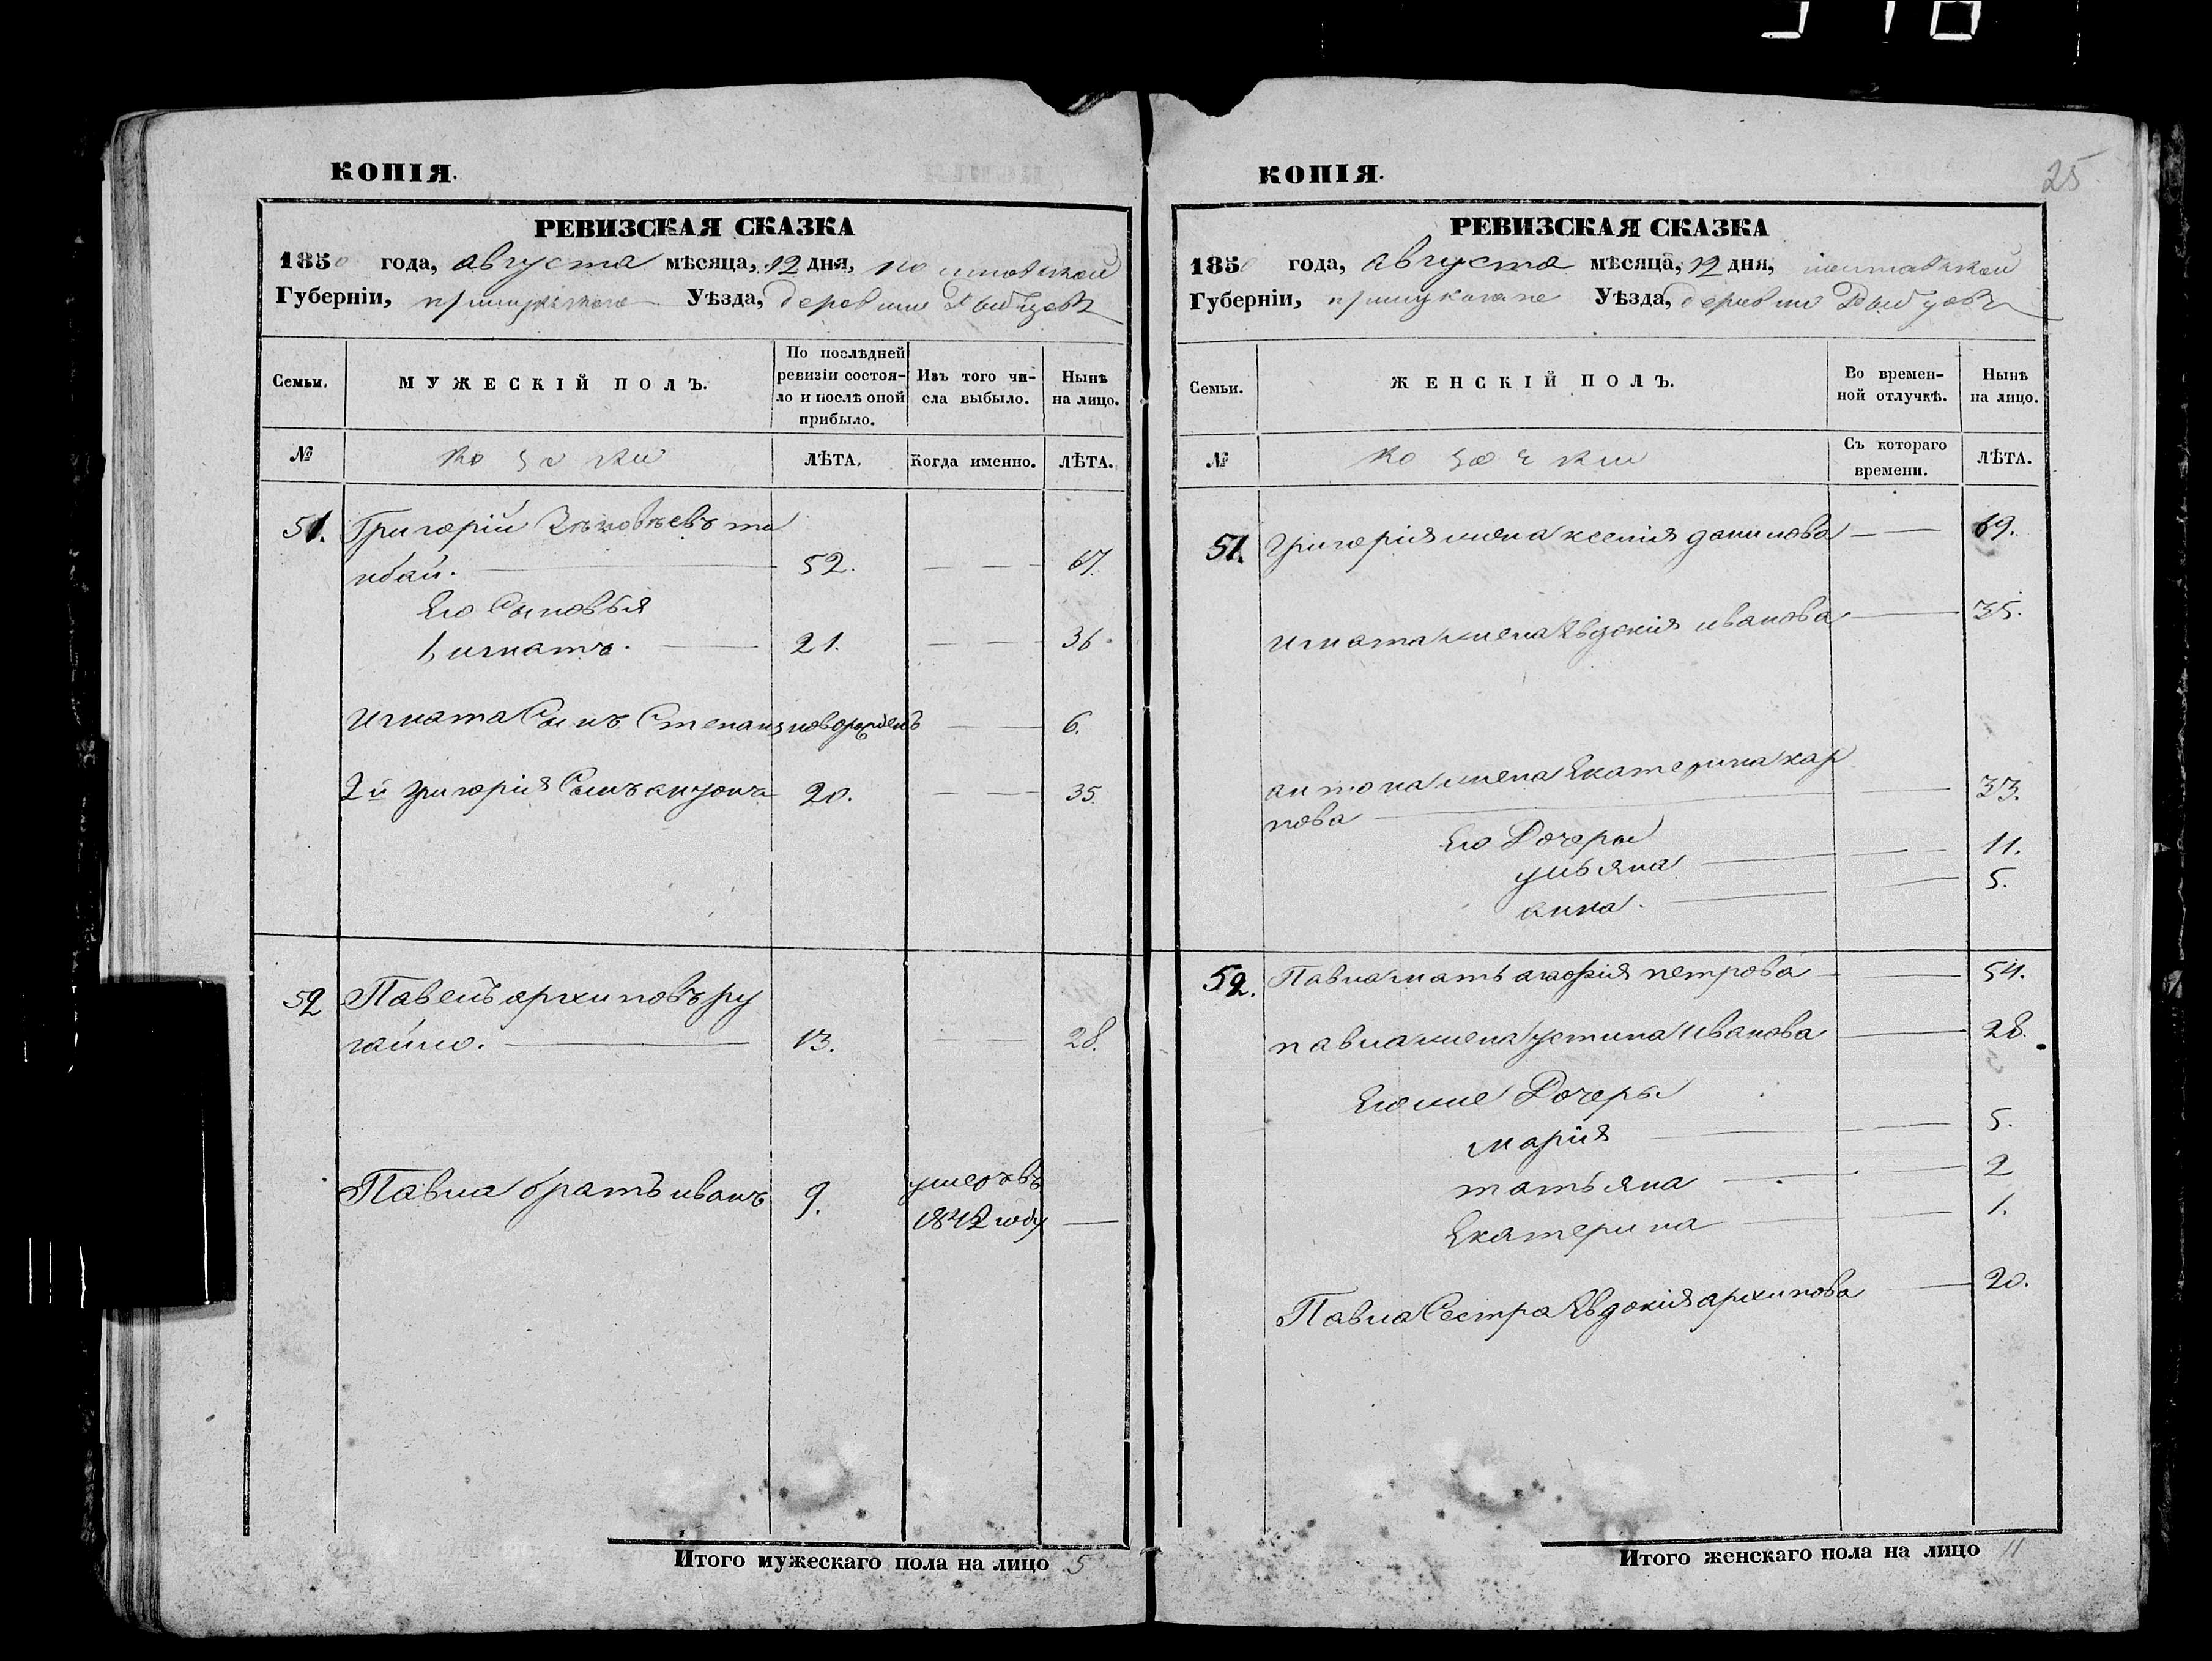 КОПІЯ.
РЕВИЗСКАЯ СКАЗКА
1850 года, августа мѣсяца, 12 дня, полтавской
Губерніи, прилукского Уѣзда, деревни Дыбцовъ
Семьи. МУЖЕСКІЙ ПОЛЪ. По послѣдней ревизіи состояло и послѣ оной прибыло. Изъ того числа выбыло. Нынѣ на лицо.
№ козаки ЛѢТА. Когда именно. ЛѢТА.
51. Григорій
52. 67.
Его Сыновья
1, игнатъ. 21. 36.
игната Сынъ Степанъ новорожденъ 6.
2й григорія Сынъ антонъ 20. 35.
52 Павелъ архиповъ ру
13. 28.
Павла братъ иванъ 9. умеръ въ
1842 году
Итого мужескаго пола на лицо 5
КОПІЯ. 25
РЕВИЗСКАЯ СКАЗКА
1850 года, августа мѣсяца, 12 дня, полтавской
Губерніи, Уѣзда, деревни Дыбцовъ
Семьи. ЖЕНСКІЙ ПОЛЪ. Во временной отлучкѣ. Нынѣ на лицо.
№ козачки Съ котораго времени. ЛѢТА.
51. григорія жена ксенія данилова 69.
игната жена Евдокія иванова 35.
антона жена Екатерина кар
пова 33.
Его Дочеры
ульяна 11.
анна. 5.
52. Павла мать агафія петрова 54.
павла жена устина иванова 28.
Его же Дочеры
марія 5.
татьяна 2
Екатерина 1.
Павла Сестра Евдокія архипова 20.
Итого женскаго пола на лицо 11